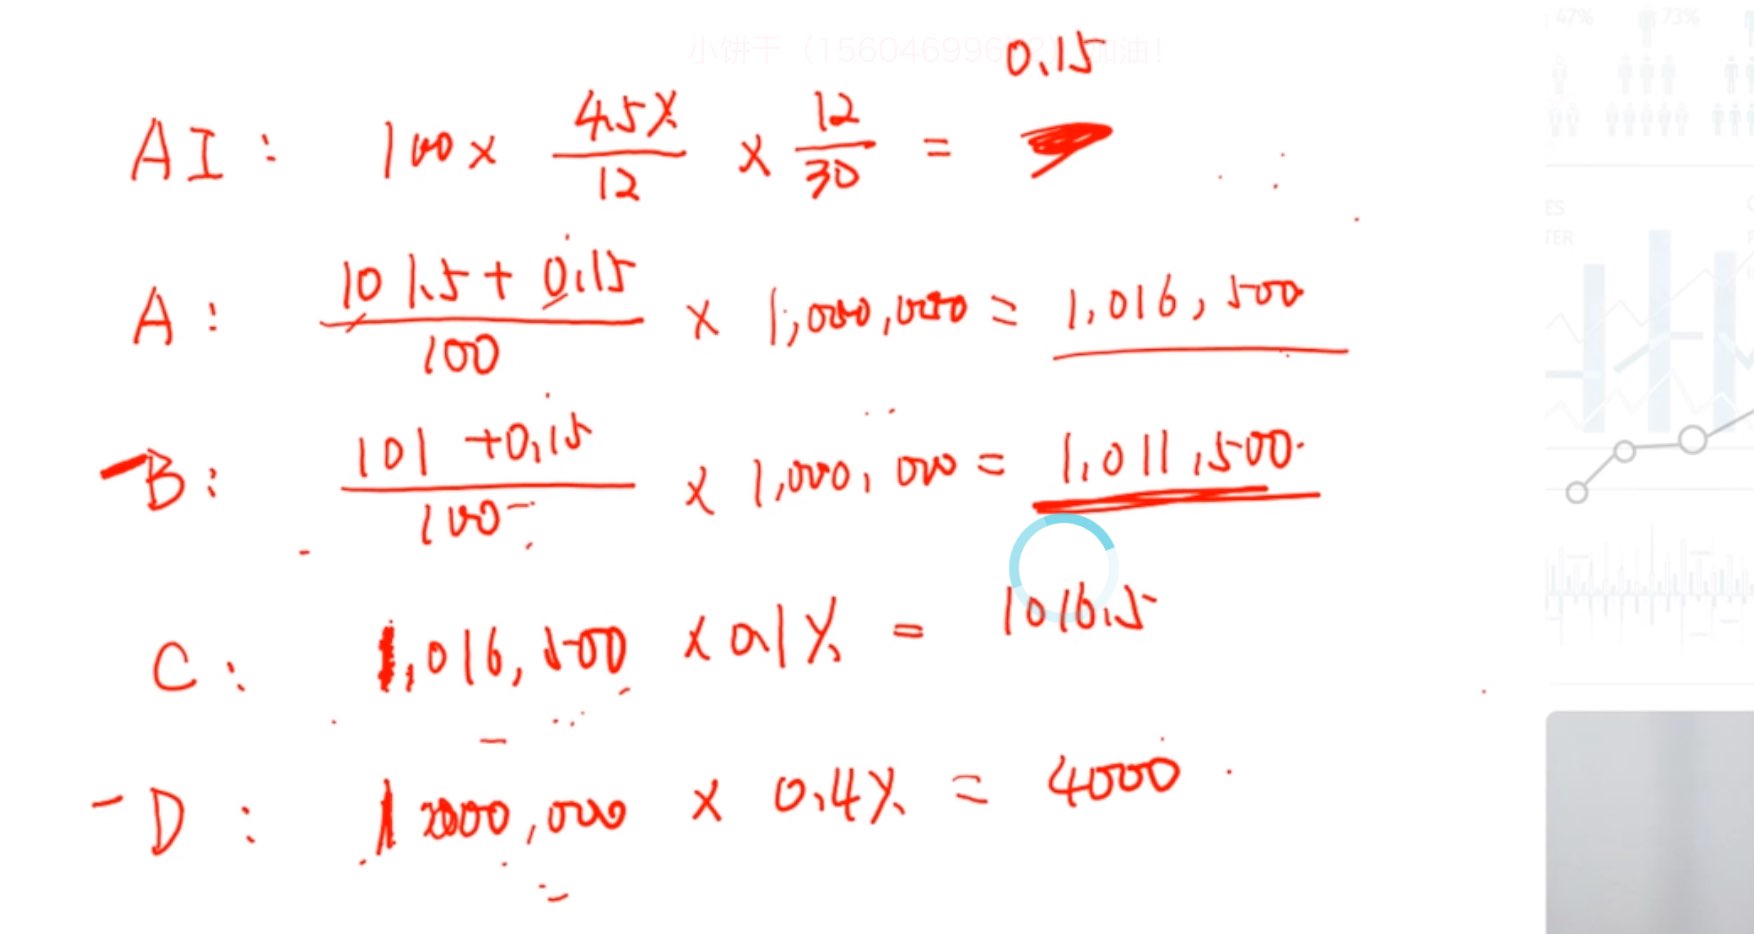 47% 73%
小饼干（156046996 加油！
0.15
AI: 100 × 4.5% / 12 × 12 / 30 =
ES
TER
A: 101.5 + 0.15 / 100 × 1,000,000 = 1,016,500
B: 101 + 0.15 / 100 × 1,000,000 = 1,011,500
C: 1,016,500 × 0.1% = 1016.5
D: 1000,000 × 0.4% = 4000